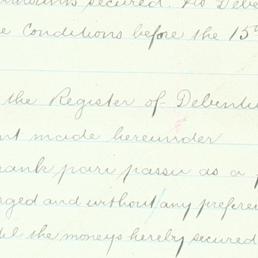 secured. No Debe
Conditions before the 15
the Register of Debentu
made hereunder
rank pari passu as a
and without any prefere
the moneys hereby secured